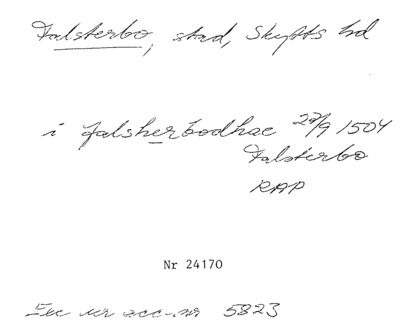 Falsterbo, stad, Skytts hd
i falsherbodhae 29/9 1504
Falsterbo
RAP
Nr 24170
Exc ur acc-nr 5823